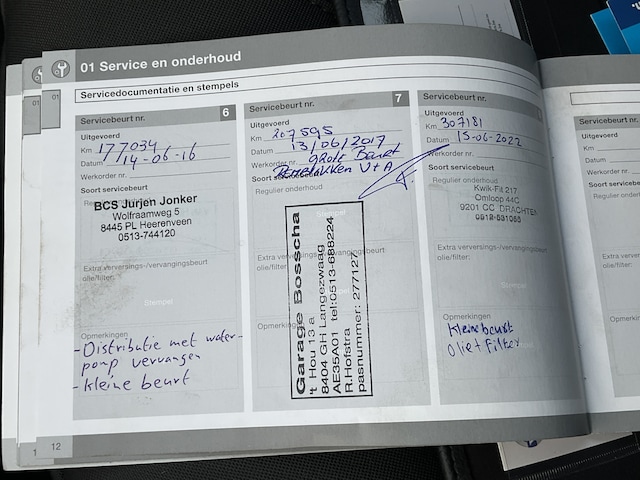 01 Service en onderhoud
Servicedocumentatie en stempels
Servicebeurt nr. 6
Uitgevoerd
Km 177034
Datum 14-06-16
Werkorder nr.
Soort servicebeurt
Regulier onderhoud
BCS Jurjen Jonker
Wolfraamweg 5
8445 PL Heerenveen
0513-744120
Extra verversings-/vervangingsbeurt
olie/filter:
Stempel
Opmerkingen
- Distributie met water-
pomp vervangen
- Kleine beurt
Servicebeurt nr. 7
Uitgevoerd
Km 207595
Datum 13/06/2017
Werkorder nr. grote Beurt
Remblokken V+A
Soort
Regulier onderhoud
Stempel
Extra verversings-/vervangingsbeurt
olie/filter:
Opmerkingen
Garage Bosscha
't Hou 13 a
8404 GH Langezwaag
AE35A01 tel:0513-688224
R.Hofstra
pasnummer: 277127
Servicebeurt nr.
Uitgevoerd
Km 307181
Datum 15-06-2022
Werkorder nr.
Soort servicebeurt
Regulier onderhoud
Kwik-Fit 217
Omloop 44C
9201 CC DRACHTEN
0512-531055
Extra verversings-/vervangingsbeurt
olie/filter:
Stempel
Opmerkingen
Kleine beurt
Olie + Filter
Servicebeurt nr.
Uitgevoerd
Km
Datum
Werkorder nr.
Regulier
Extra ver
olie/filter
Opmerk
12
01
01